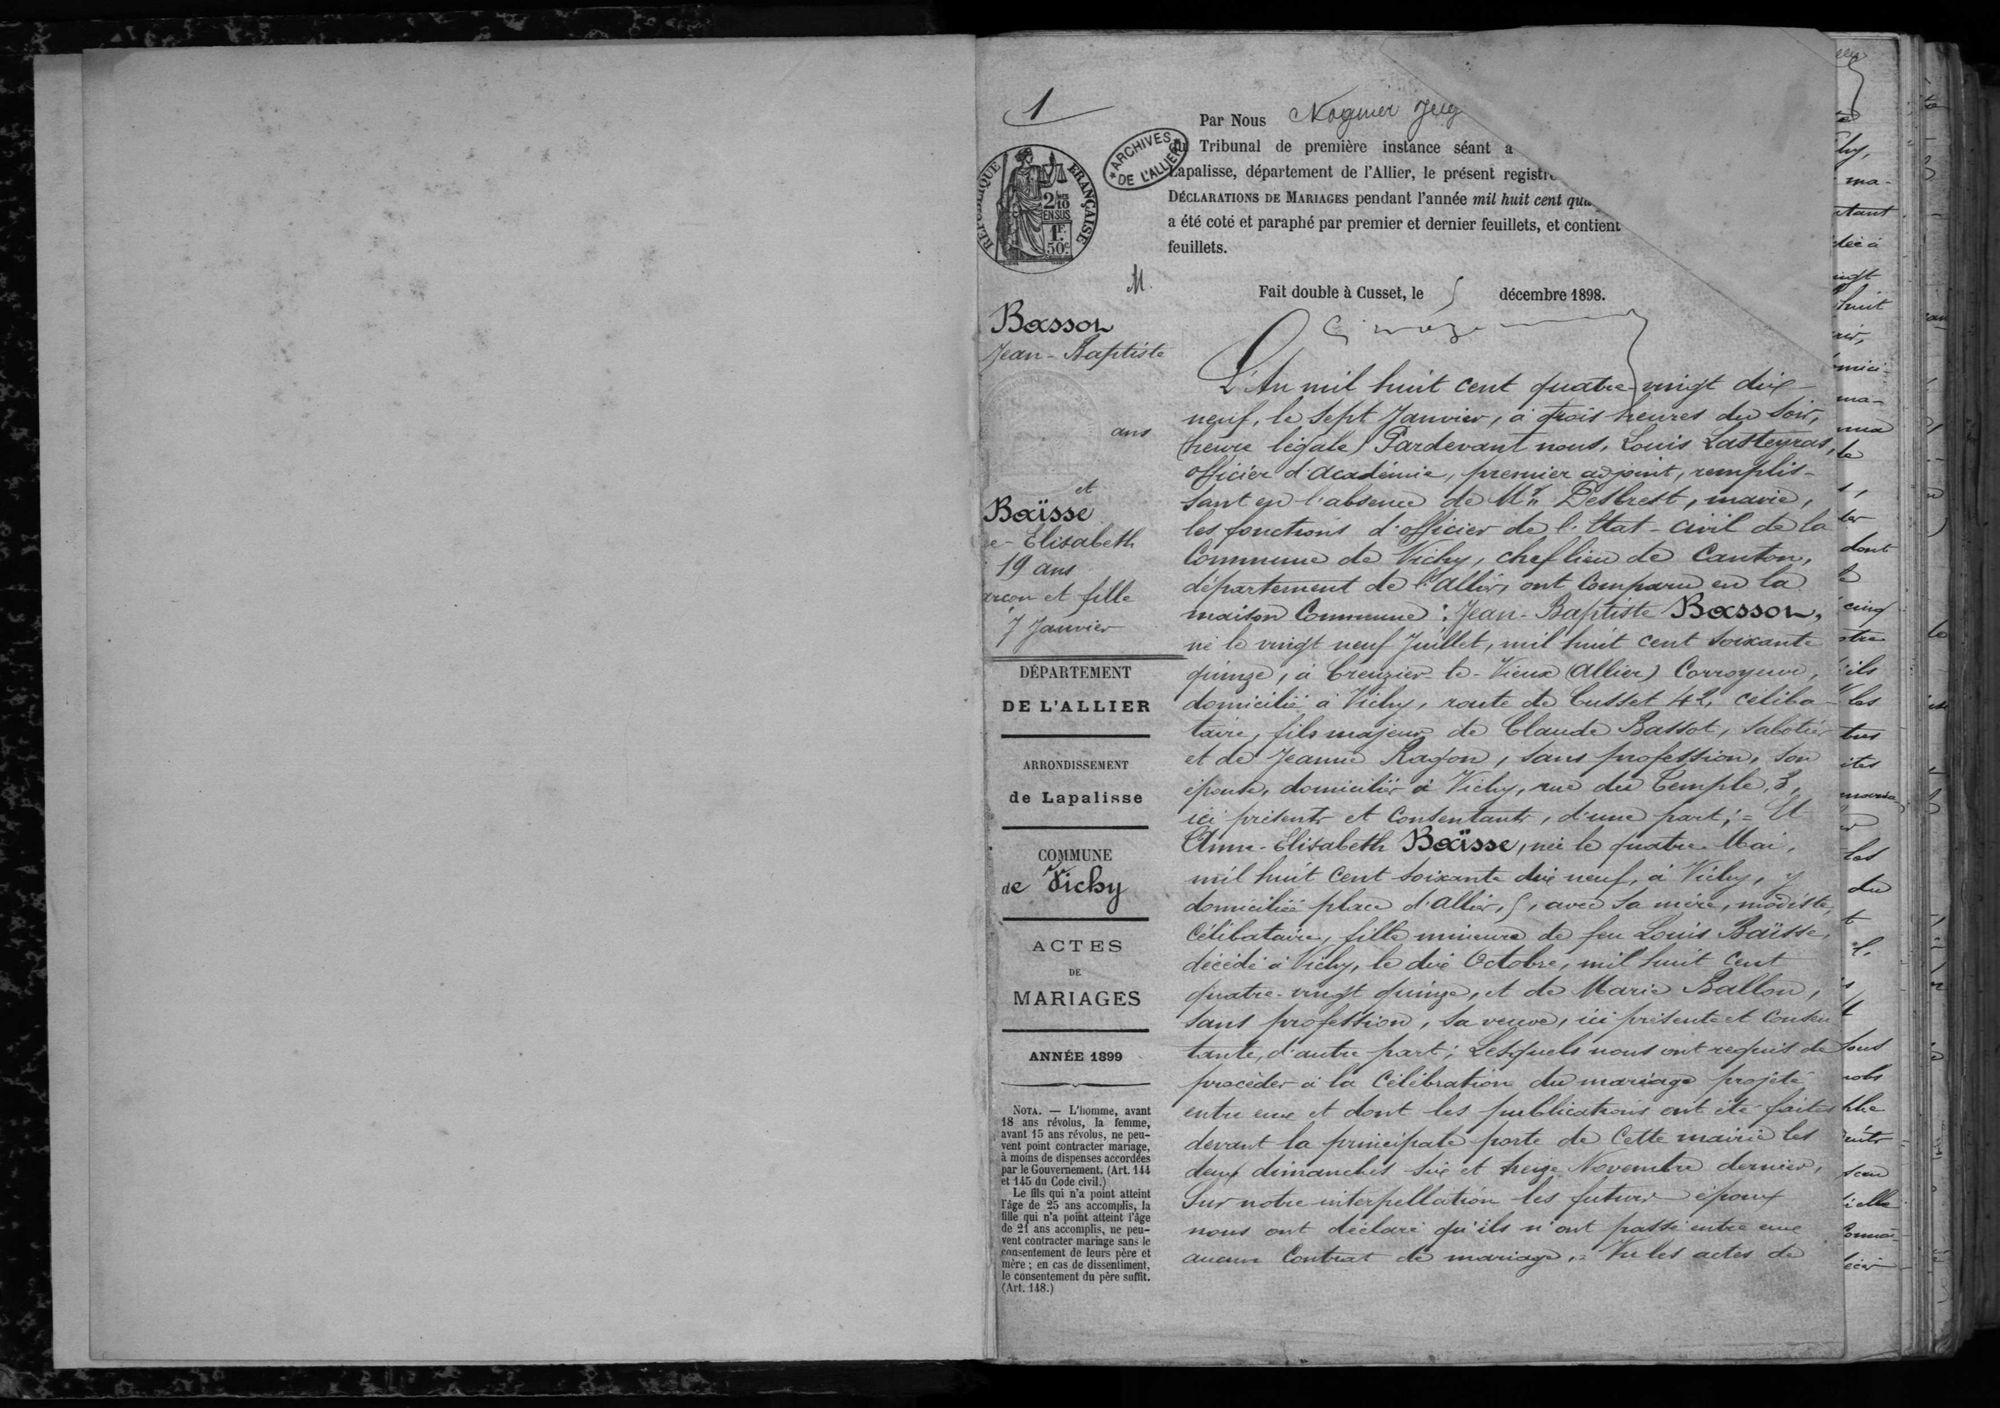 1
Par Nous Nognier Jug
du Tribunal de première instance séant à
Lapalisse, département de l'Allier, le présent registre
DÉCLARATIONS DE MARIAGES pendant l'année mil huit cent qua
a été coté et paraphé par premier et dernier feuillets, et contient
feuillets.
Fait double à Cusset, le 5 décembre 1898.
ARCHIVES
DE L'ALLIER
RÉPUBLIQUE FRANÇAISE
2/10
EN SUS
1F
50c
M.
Bassot
Jean-Baptiste
ans
et
Baïsse
e-Elisabeth
19 ans
arçon et fille
7 Janvier
DÉPARTEMENT
DE L'ALLIER
ARRONDISSEMENT
de Lapalisse
COMMUNE
de Vichy
ACTES
DE
MARIAGES
ANNÉE 1899
NOTA. — L'homme, avant
18 ans révolus, la femme,
avant 15 ans révolus, ne peu-
vent point contracter mariage,
à moins de dispenses accordées
par le Gouvernement. (Art. 144
et 145 du Code civil.)
Le fils qui n'a point atteint
l'âge de 25 ans accomplis, la
fille qui n'a point atteint l'âge
de 21 ans accomplis, ne peu-
vent contracter mariage sans le
consentement de leurs père et
mère ; en cas de dissentiment,
le consentement du père suffit.
(Art. 148.)
L'An mil huit cent quatre-vingt dix-
neuf, le sept Janvier, à trois heures du soir,
(heure légale) Pardevant nous, Louis Lasteyras,
officier d'académie, premier adjoint, remplis-
sant en l'absence de Mr. Desbrest, maire,
les fonctions d'officier de l'Etat-civil de la
Commune de Vichy, chef lieu de Canton,
département de l'Allier, ont comparu en la
maison Commune : Jean-Baptiste Bassot,
né le vingt neuf Juillet, mil huit cent soixante
quinze, à Creuzier-le-Vieux (Allier) Corroyeur,
domicilié à Vichy, route de Cusset 42, céliba-
taire, fils majeur de Claude Bassot, sabotier
et de Jeanne Rayon, sans profession, son
épouse, domiciliés à Vichy, rue du Temple, 3,
ici présents et consentants, d'une part ; = Et
Anne-Elisabeth Baïsse, née le quatre Mai,
mil huit cent soixante dix neuf, à Vichy, y
domiciliée place d'Allier, 5, avec sa mère, modiste,
célibataire, fille mineure de feu Louis Baïsse,
décédé à Vichy, le dix Octobre, mil huit cent
quatre-vingt quinze, et de Marie Ballon,
sans profession, sa veuve, ici présente et consen
tante, d'autre part ; Lesquels nous ont requis de
procéder à la Célébration du mariage projeté
entre eux et dont les publications ont été faites
devant la principale porte de cette mairie les
deux dimanches six et treize Novembre dernier,
Sur notre interpellation les futurs époux
nous ont déclaré qu'ils n'ont passé entre eux
aucun Contrat de mariage. = Vu les actes de